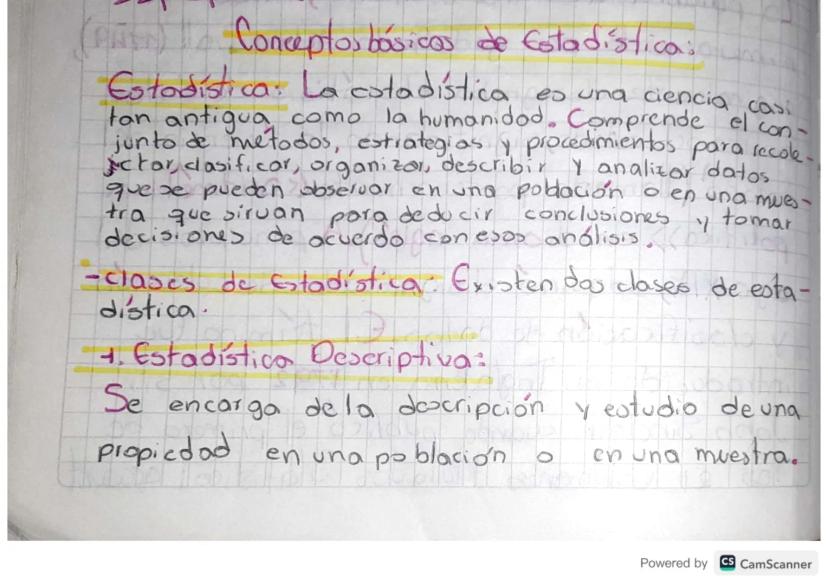 Conceptos básicos de Estadística:
Estadística: La estadística es una ciencia casi
tan antigua como la humanidad. Comprende el con-
junto de métodos, estrategias y procedimientos para recole-
ctar, clasificar, organizar, describir y analizar datos
que se pueden observar en una población o en una mues-
tra que sirvan para deducir conclusiones y tomar
decisiones de acuerdo con esos análisis.
-clases de Estadística: Existen dos clases de esta-
dística.
1. Estadística Descriptiva:
Se encarga de la descripción y estudio de una
propiedad en una población o en una muestra.
Powered by CS CamScanner